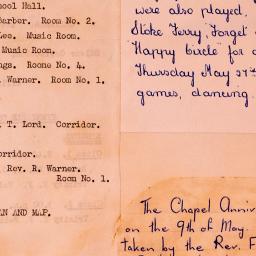 ool Hall.
arber. Room No. 2.
Lee. Music Room.
Music Room.
ngs. Room No. 4.
Warner. Room No. 1.
T. Lord. Corridor.
orridor.
Rev. R. Warner.
Room No. 1.
AN AND MAP.
were also played,
Stoke Ferry, Forget
"Happy Circle" for a
Thursday May 27th
games, dancing
The Chapel Anniv
on the 9th of May.
taken by the Rev. F